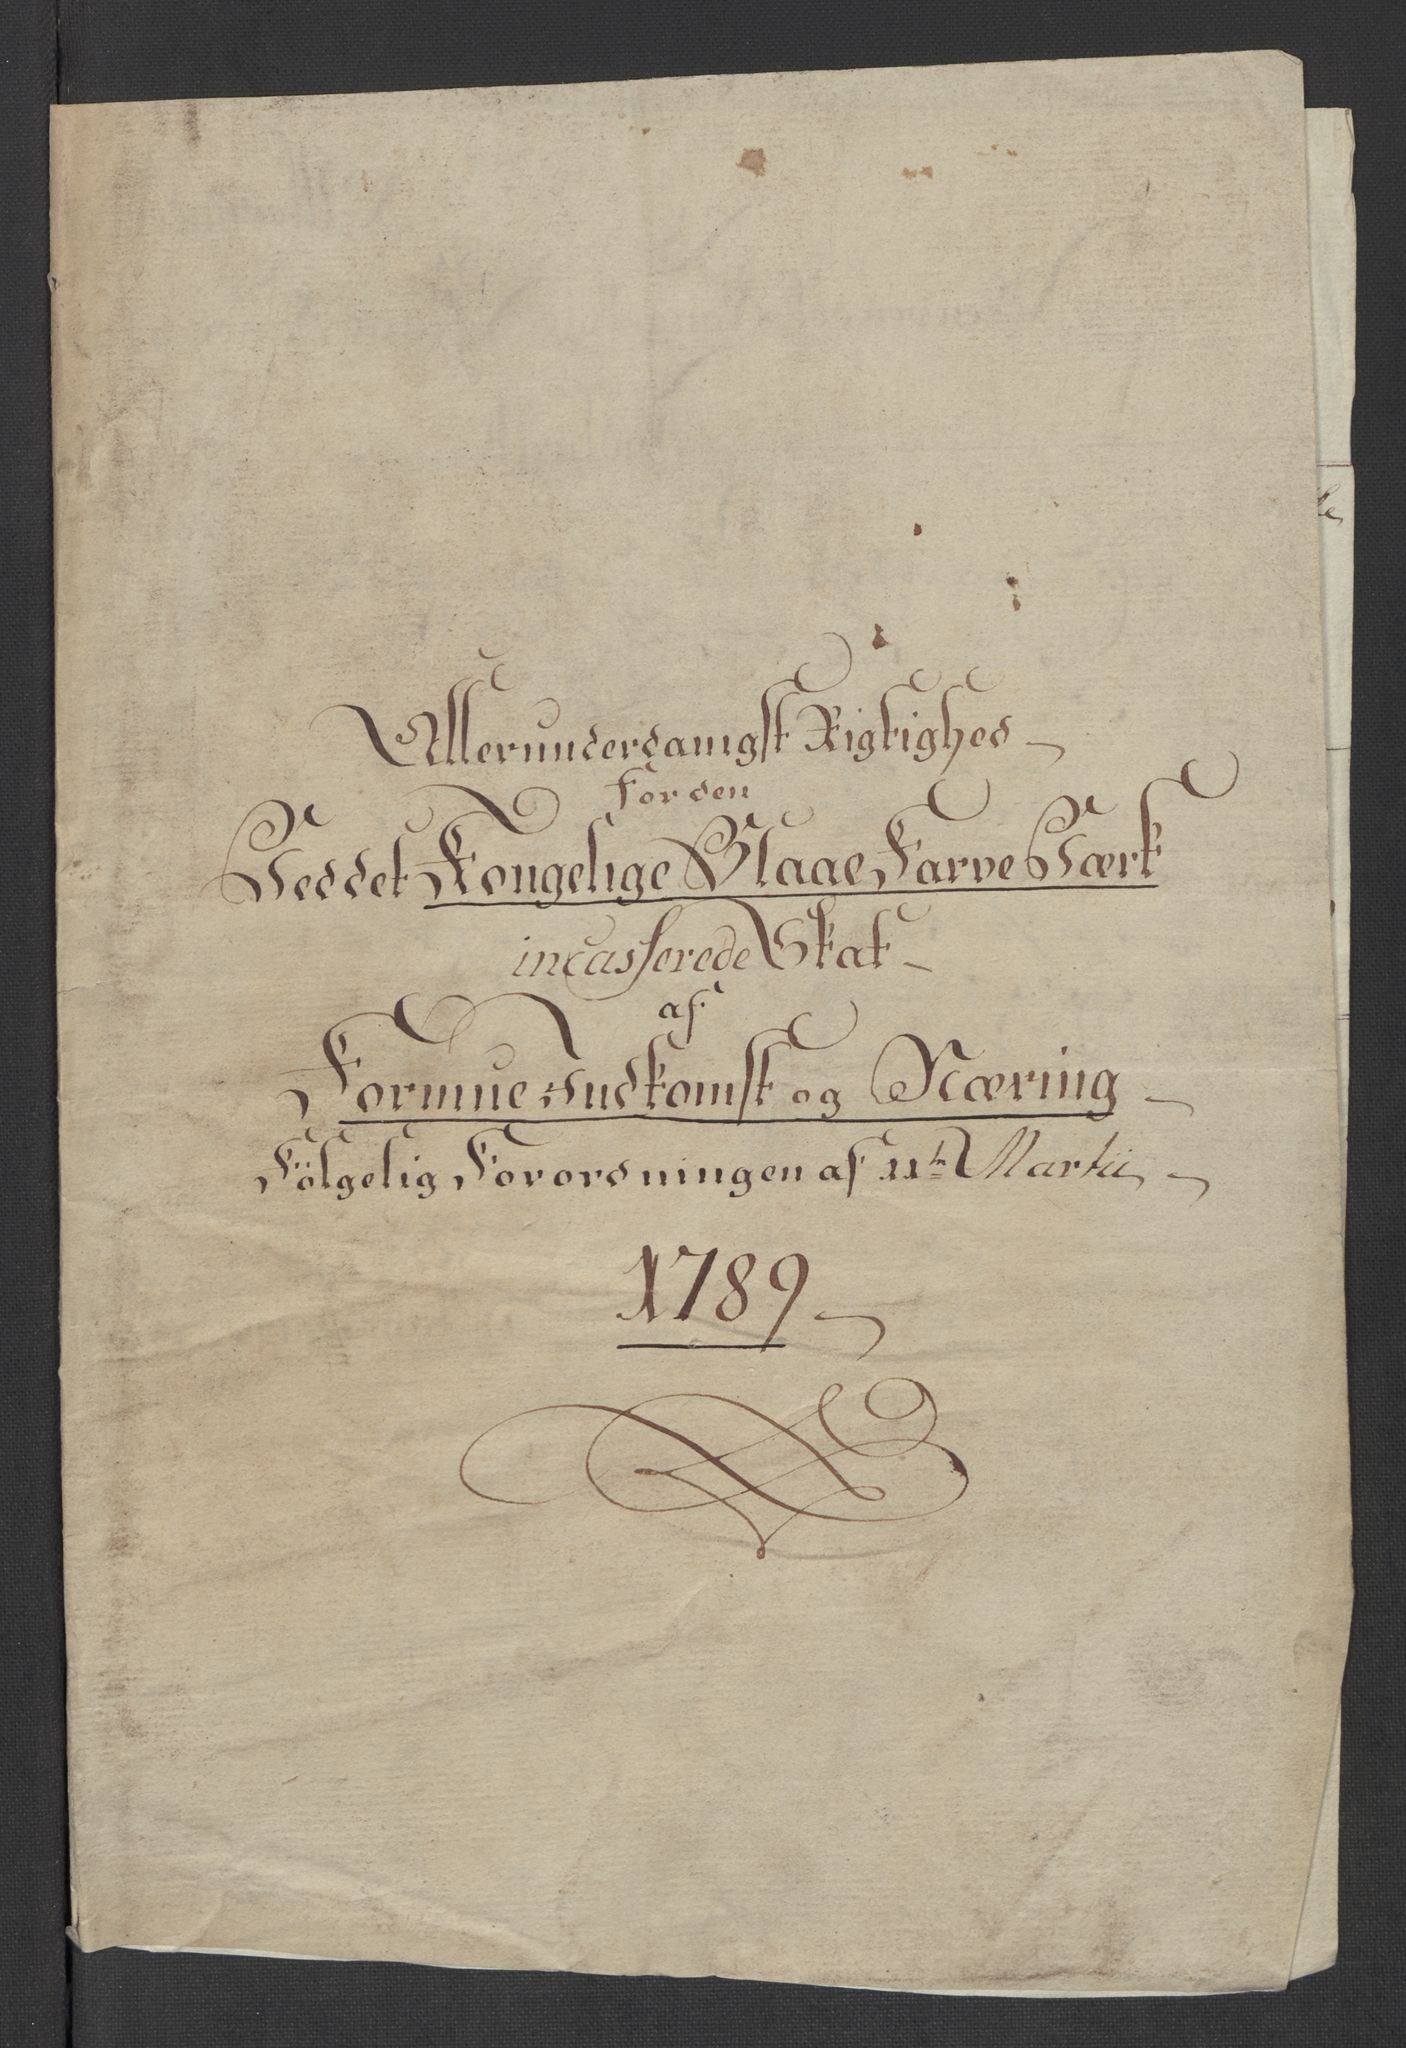 Allerunderdanigst Rigtighed
For den
Ved det Kongelige Blaae Farve Værk
incasserede Skat
af
Formue Indkomst og Næring
Fölgelig Forordningen af 11te Martii
1789